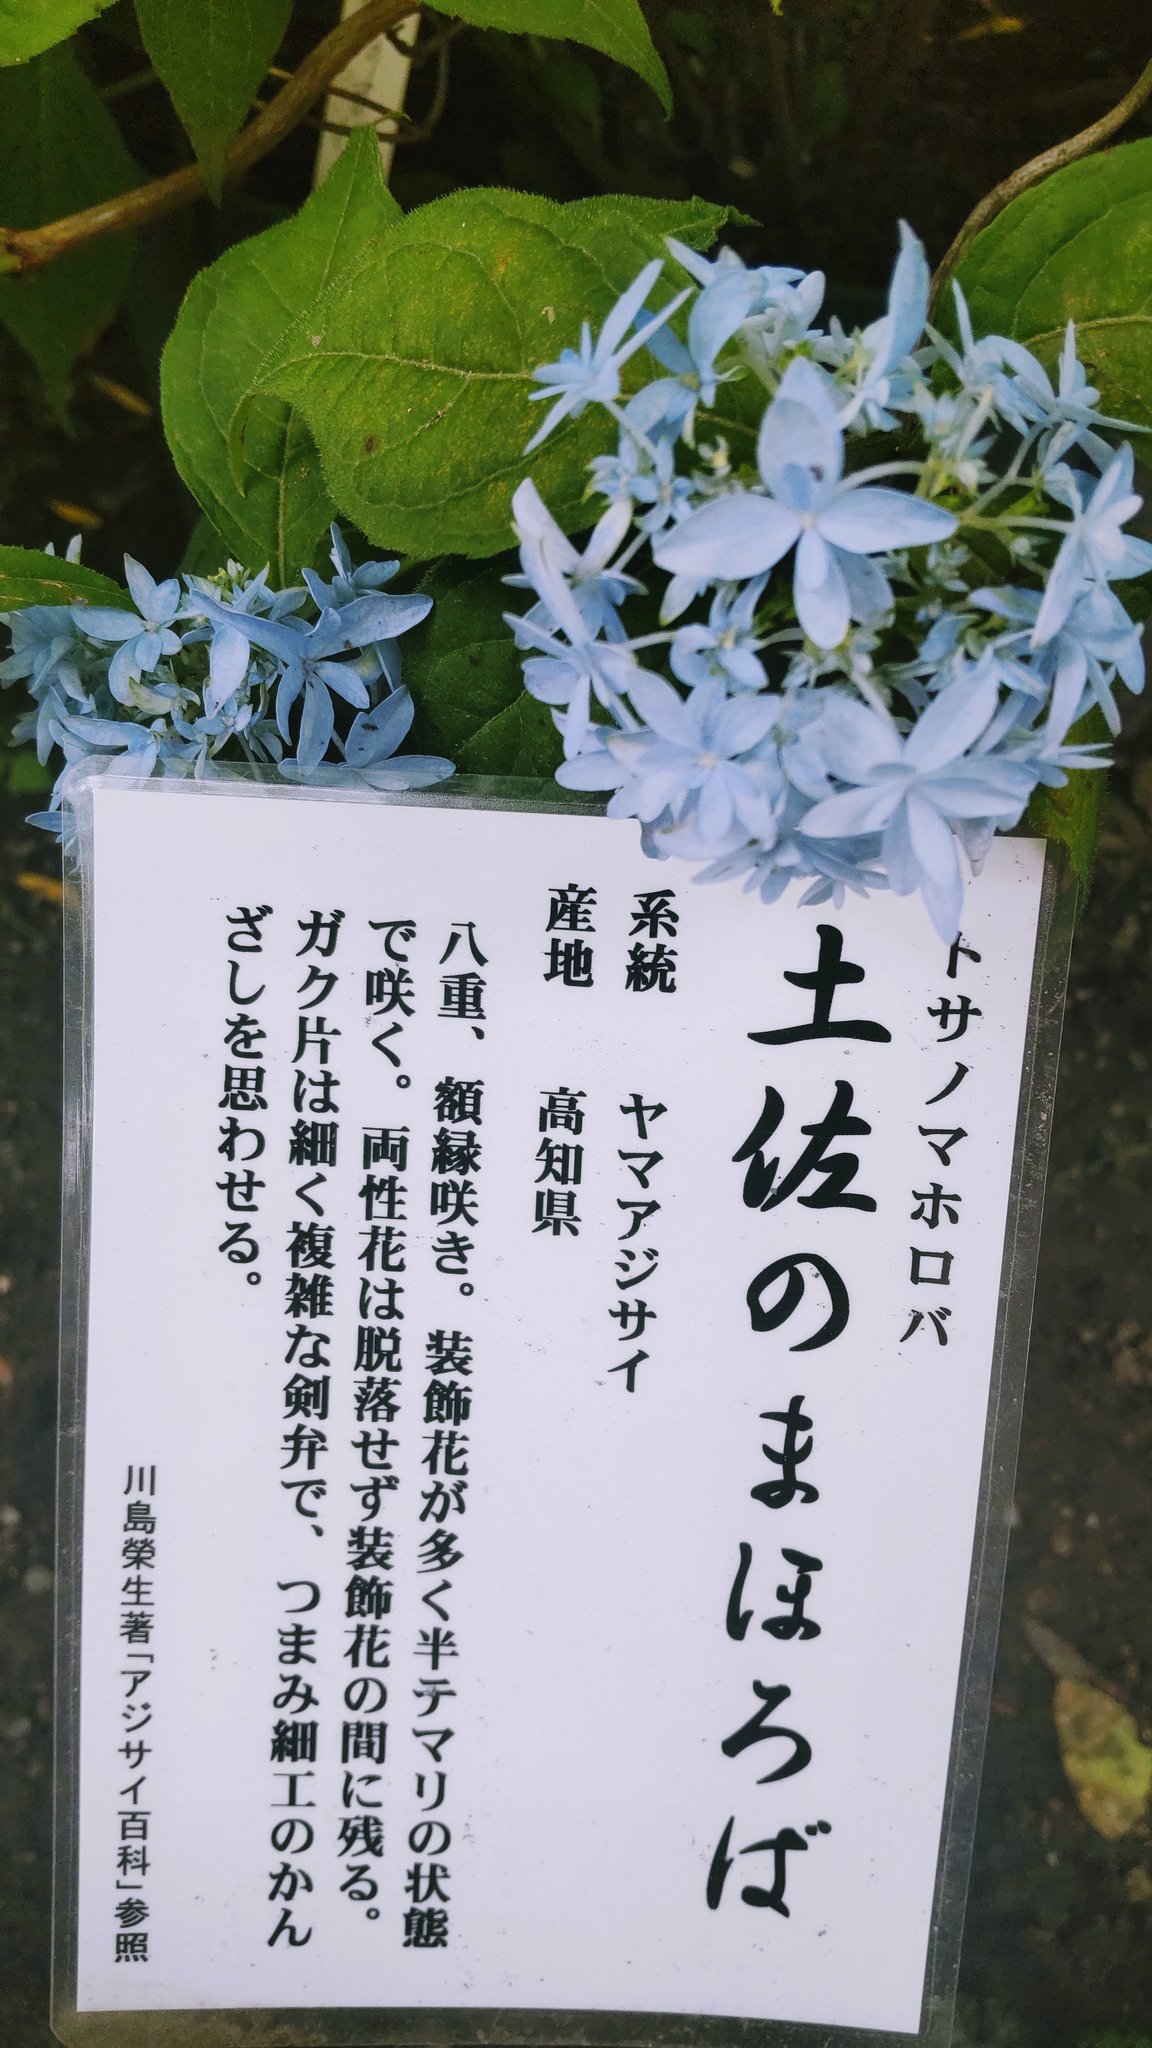 トサノマホロバ
土佐のまほろば
系統　ヤマアジサイ
産地　高知県
八重、額縁咲き。装飾花が多く半テマリの状態
で咲く。両性花は脱落せず装飾花の間に残る。
ガク片は細く複雑な剣弁で、つまみ細工のかん
ざしを思わせる。
川島榮生著「アジサイ百科」参照